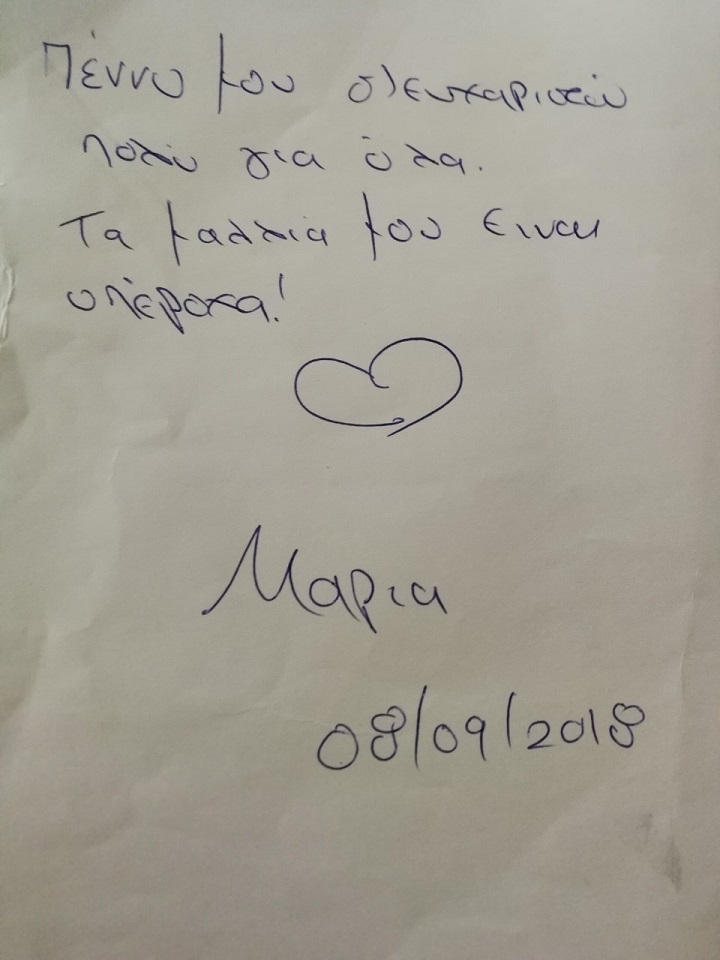 Πέννυ μου σ'ευχαριστώ
πολύ για όλα.
Τα μαλλιά μου ειναι
υπέροχα!
Μαρια
08/09/2018